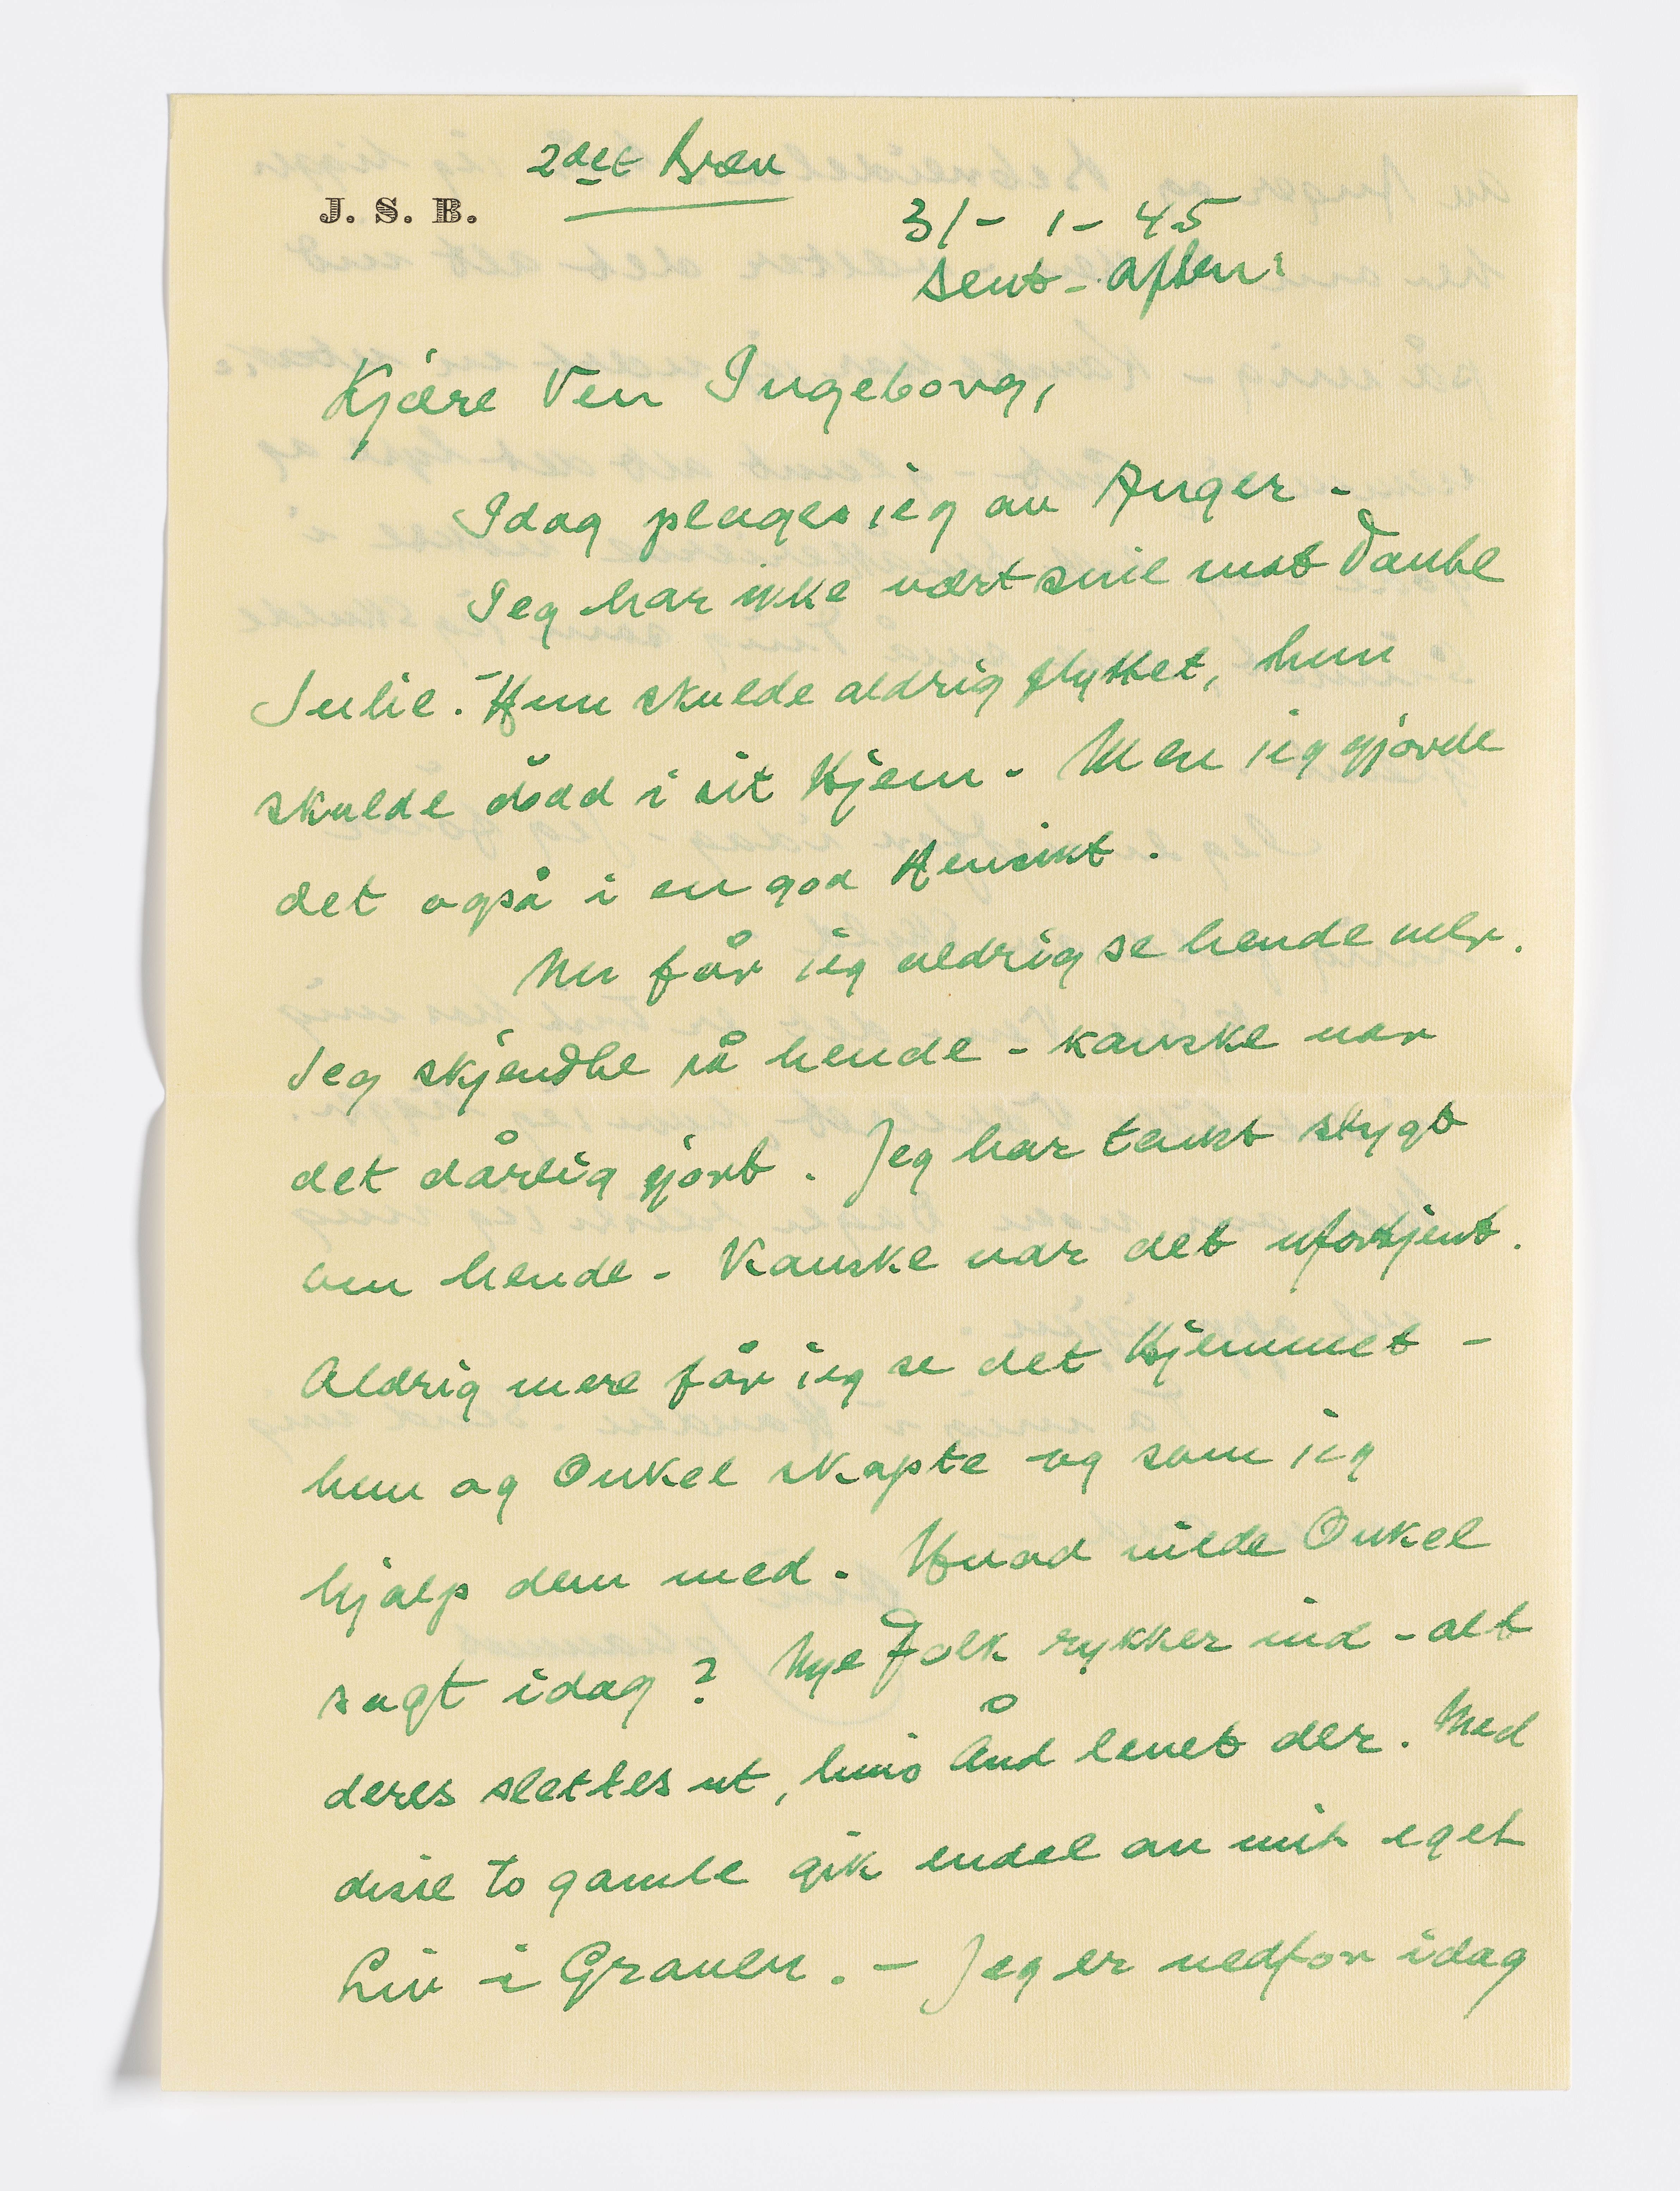 2det Brev
J. S. B.
31 - 1 - 45
sent - aften:
Kjære Ven Ingeborg,
Idag plages jeg av Anger -
Jeg har ikke vært snil mot Tante
Julie. - Hun skulde aldrig flyttet, hun
skulde dödd i sit Hjem - Men jeg gjorde
det også i en god Hensikt.
Nu får jeg aldrig se hende mer.
Jeg skjendte på hende - kanske var
det dårlig gjort. Jeg har tenkt stygt
om hende - Kanske var det ufortjent.
Aldrig mere får jeg se det Hjemmet -
hun og Onkel skapte og som jeg
hjalp dem med. Hvad vilde Onkel
sagt idag? Nye Folk rykker ind - alt
deres slettes ut, hvis Ånd levet der. Med
disse to gamle gik endel av mit eget
Liv i Graven. - Jeg er nedfor idag